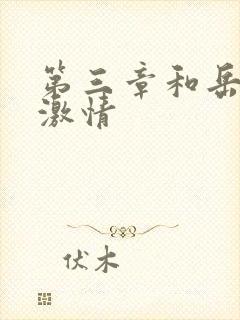 第三章和岳
激情
伏木